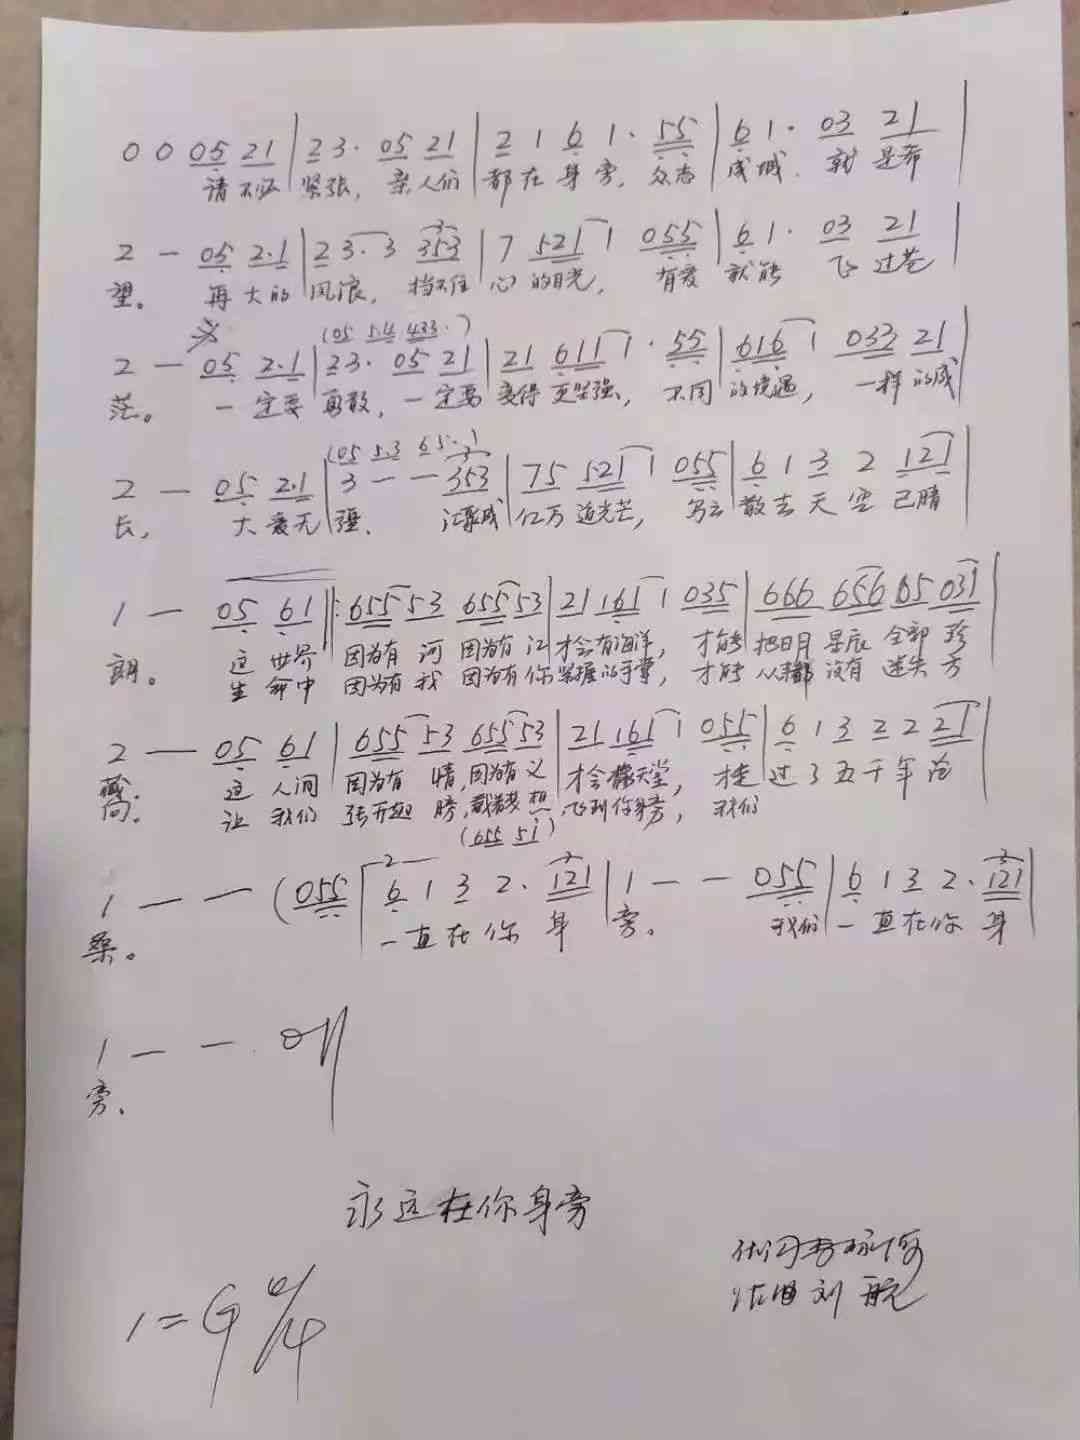 0 0 05 21 | 23· 05 21 | 2 1 6 1· 55 | 6 1· 03 21 |
请不必 紧张, 亲人们 都在身旁, 众志 成城, 就 是希
2 — 05 2·1 | 23· 3 353 | 7 521 1 055 | 6 1· 03 21 |
望。 再大的 风浪, 挡不住 心的目光, 有爱 就能 飞过苍
(05 54 433·)
2 — 05 2·1 | 23· 05 21 | 21 611 1· 55 | 616 1 033 21 |
茫。 一定要 勇敢, 一定要 变得更坚强, 不同 的境遇, 一样的成
(05 53 65·)
2 — 05 2·1 | 3 — — 353 | 75 521 1 055 | 6 1 3 2 121 |
长, 大爱无 疆. 汇聚成 亿万道光芒, 乌云 散去天空已晴
1 — 05 61 ‖: 655 53 655 53 | 21 161 1 035 | 666 656 65 031 |
朗。 这世界 因为有 河 因为有 江 才会有海洋, 才能 把日月星辰全部 珍
生命中 因为有 我 因为有你 紧握的手掌, 才能 从来都没有迷失方
2 — 05 61 | 655 53 655 53 | 21 161 1 055 | 6 1 3 2 2 21 |
藏. 这人间 因为有 情,因为有义 才会像天堂, 才走 过了五千年沧
向. 让我们 张开翅膀, 想 飞到你身旁, 我们
(655 51)
1 — — — (055 | 6 1 3 2· 121 | 1 — — 055 | 6 1 3 2· 121 |
桑。 一直在你 身 旁。 我们 一直在你 身
1 — — 0 ‖
旁.
永远在你身旁
作词李咏何
作曲 刘航
1=G 4/4